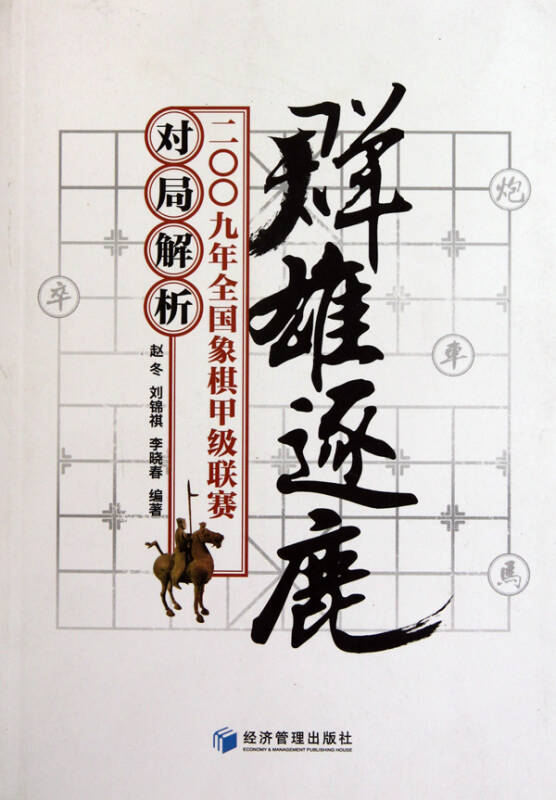 群雄逐鹿
二〇〇九年全国象棋甲级联赛
对局解析
赵冬 刘锦祺 李晓春 编著
炮
卒
車
馬
经济管理出版社
ECONOMY & MANAGEMENT PUBLISHING HOUSE